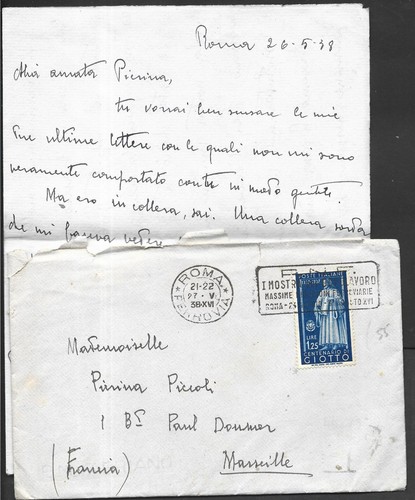 Roma 26-5-38
Mia amata Pierina,
tu vorrai ben scusare le mie
due ultime lettere con le quali non mi sono
veramente comportato con te in modo gentile.
Ma ero in collera, sai. Una collera sorda
da mi faceva vedere
ROMA
21-22
27·V
38·XVI
FERROVIA
I MOSTRA
MASSIME
ROMA-
LAVORO
VIARIE
POSTE ITALIANE
LIRE
1,25
CENTENARIO DI
GIOTTO
55
Mademoiselle
Pierina Piccoli
1 Bs Paul Doumer
Marseille
(Francia)